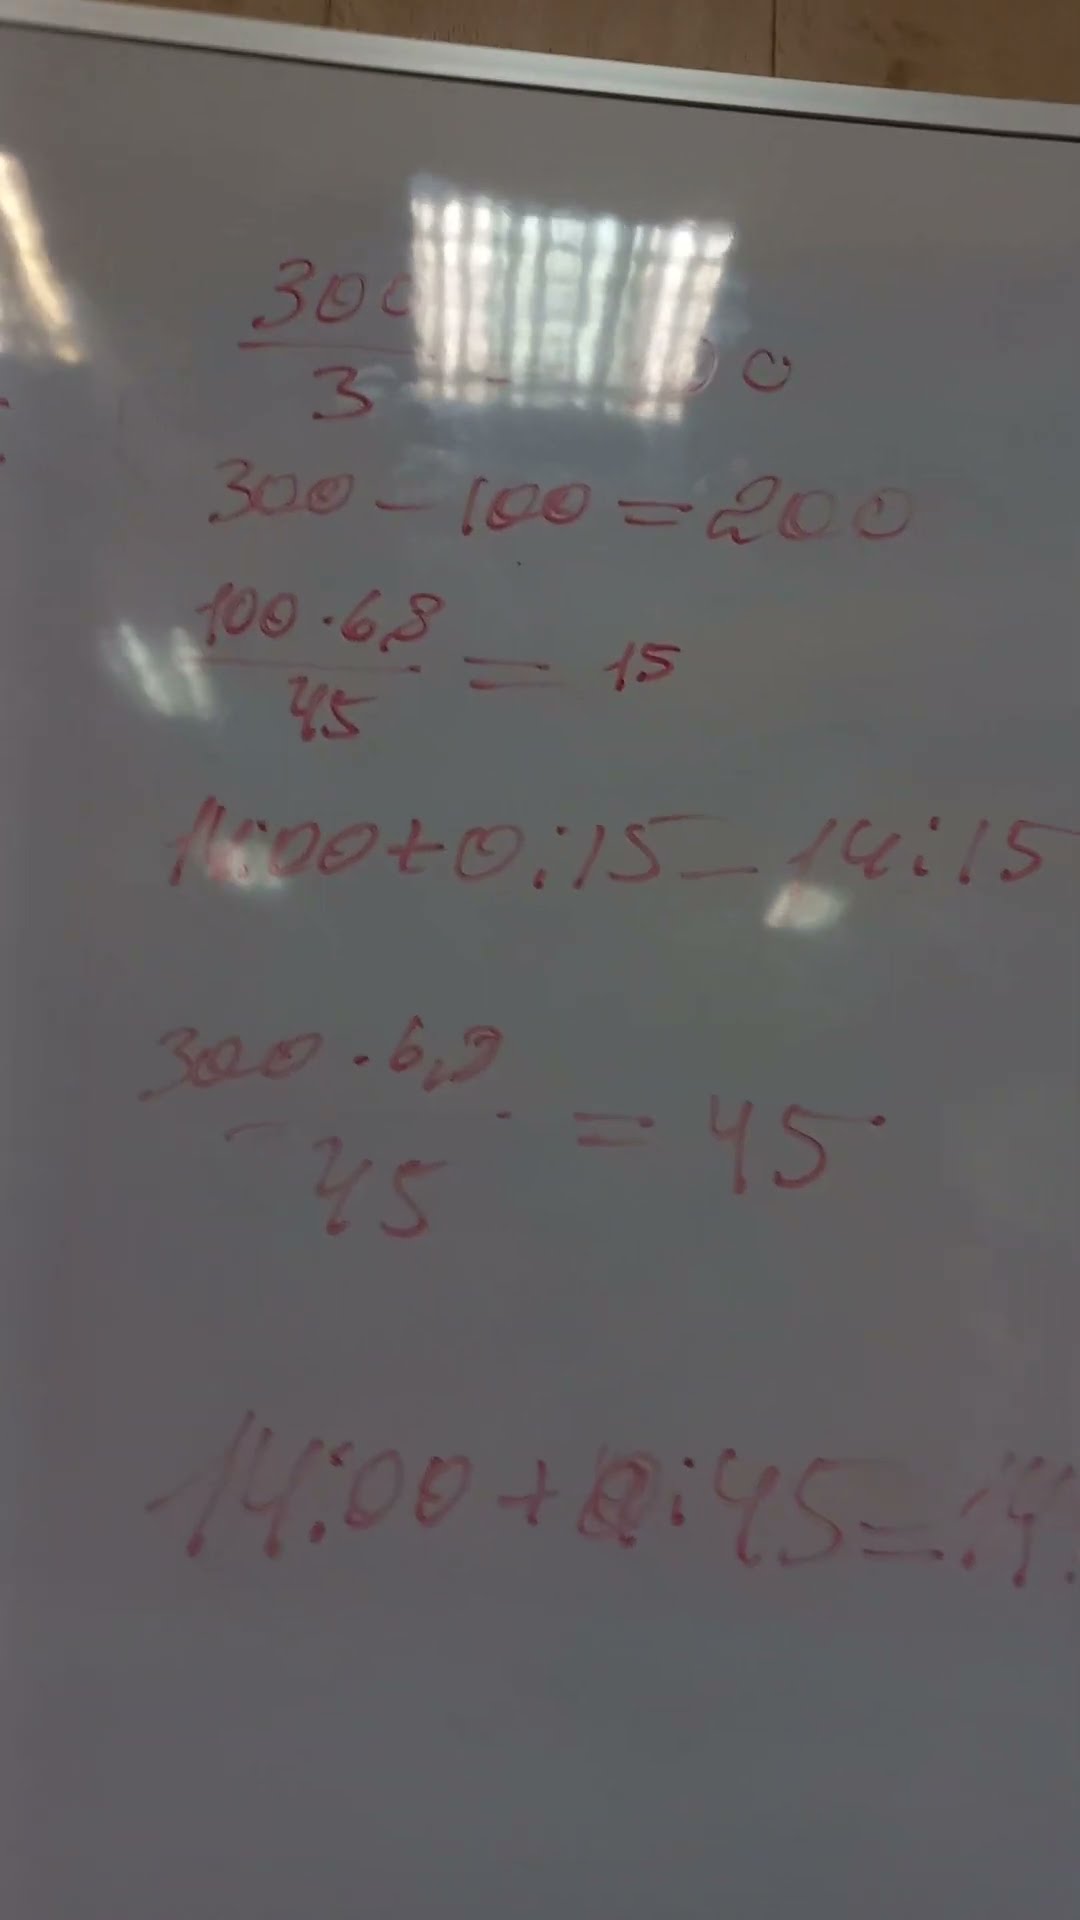 300
3
300 - 100 = 200
100 · 6,8
45
= 15
14:00 + 0:15 = 14:15
300 · 6,8
45
= 45
14:00 + 0:45 = 14: